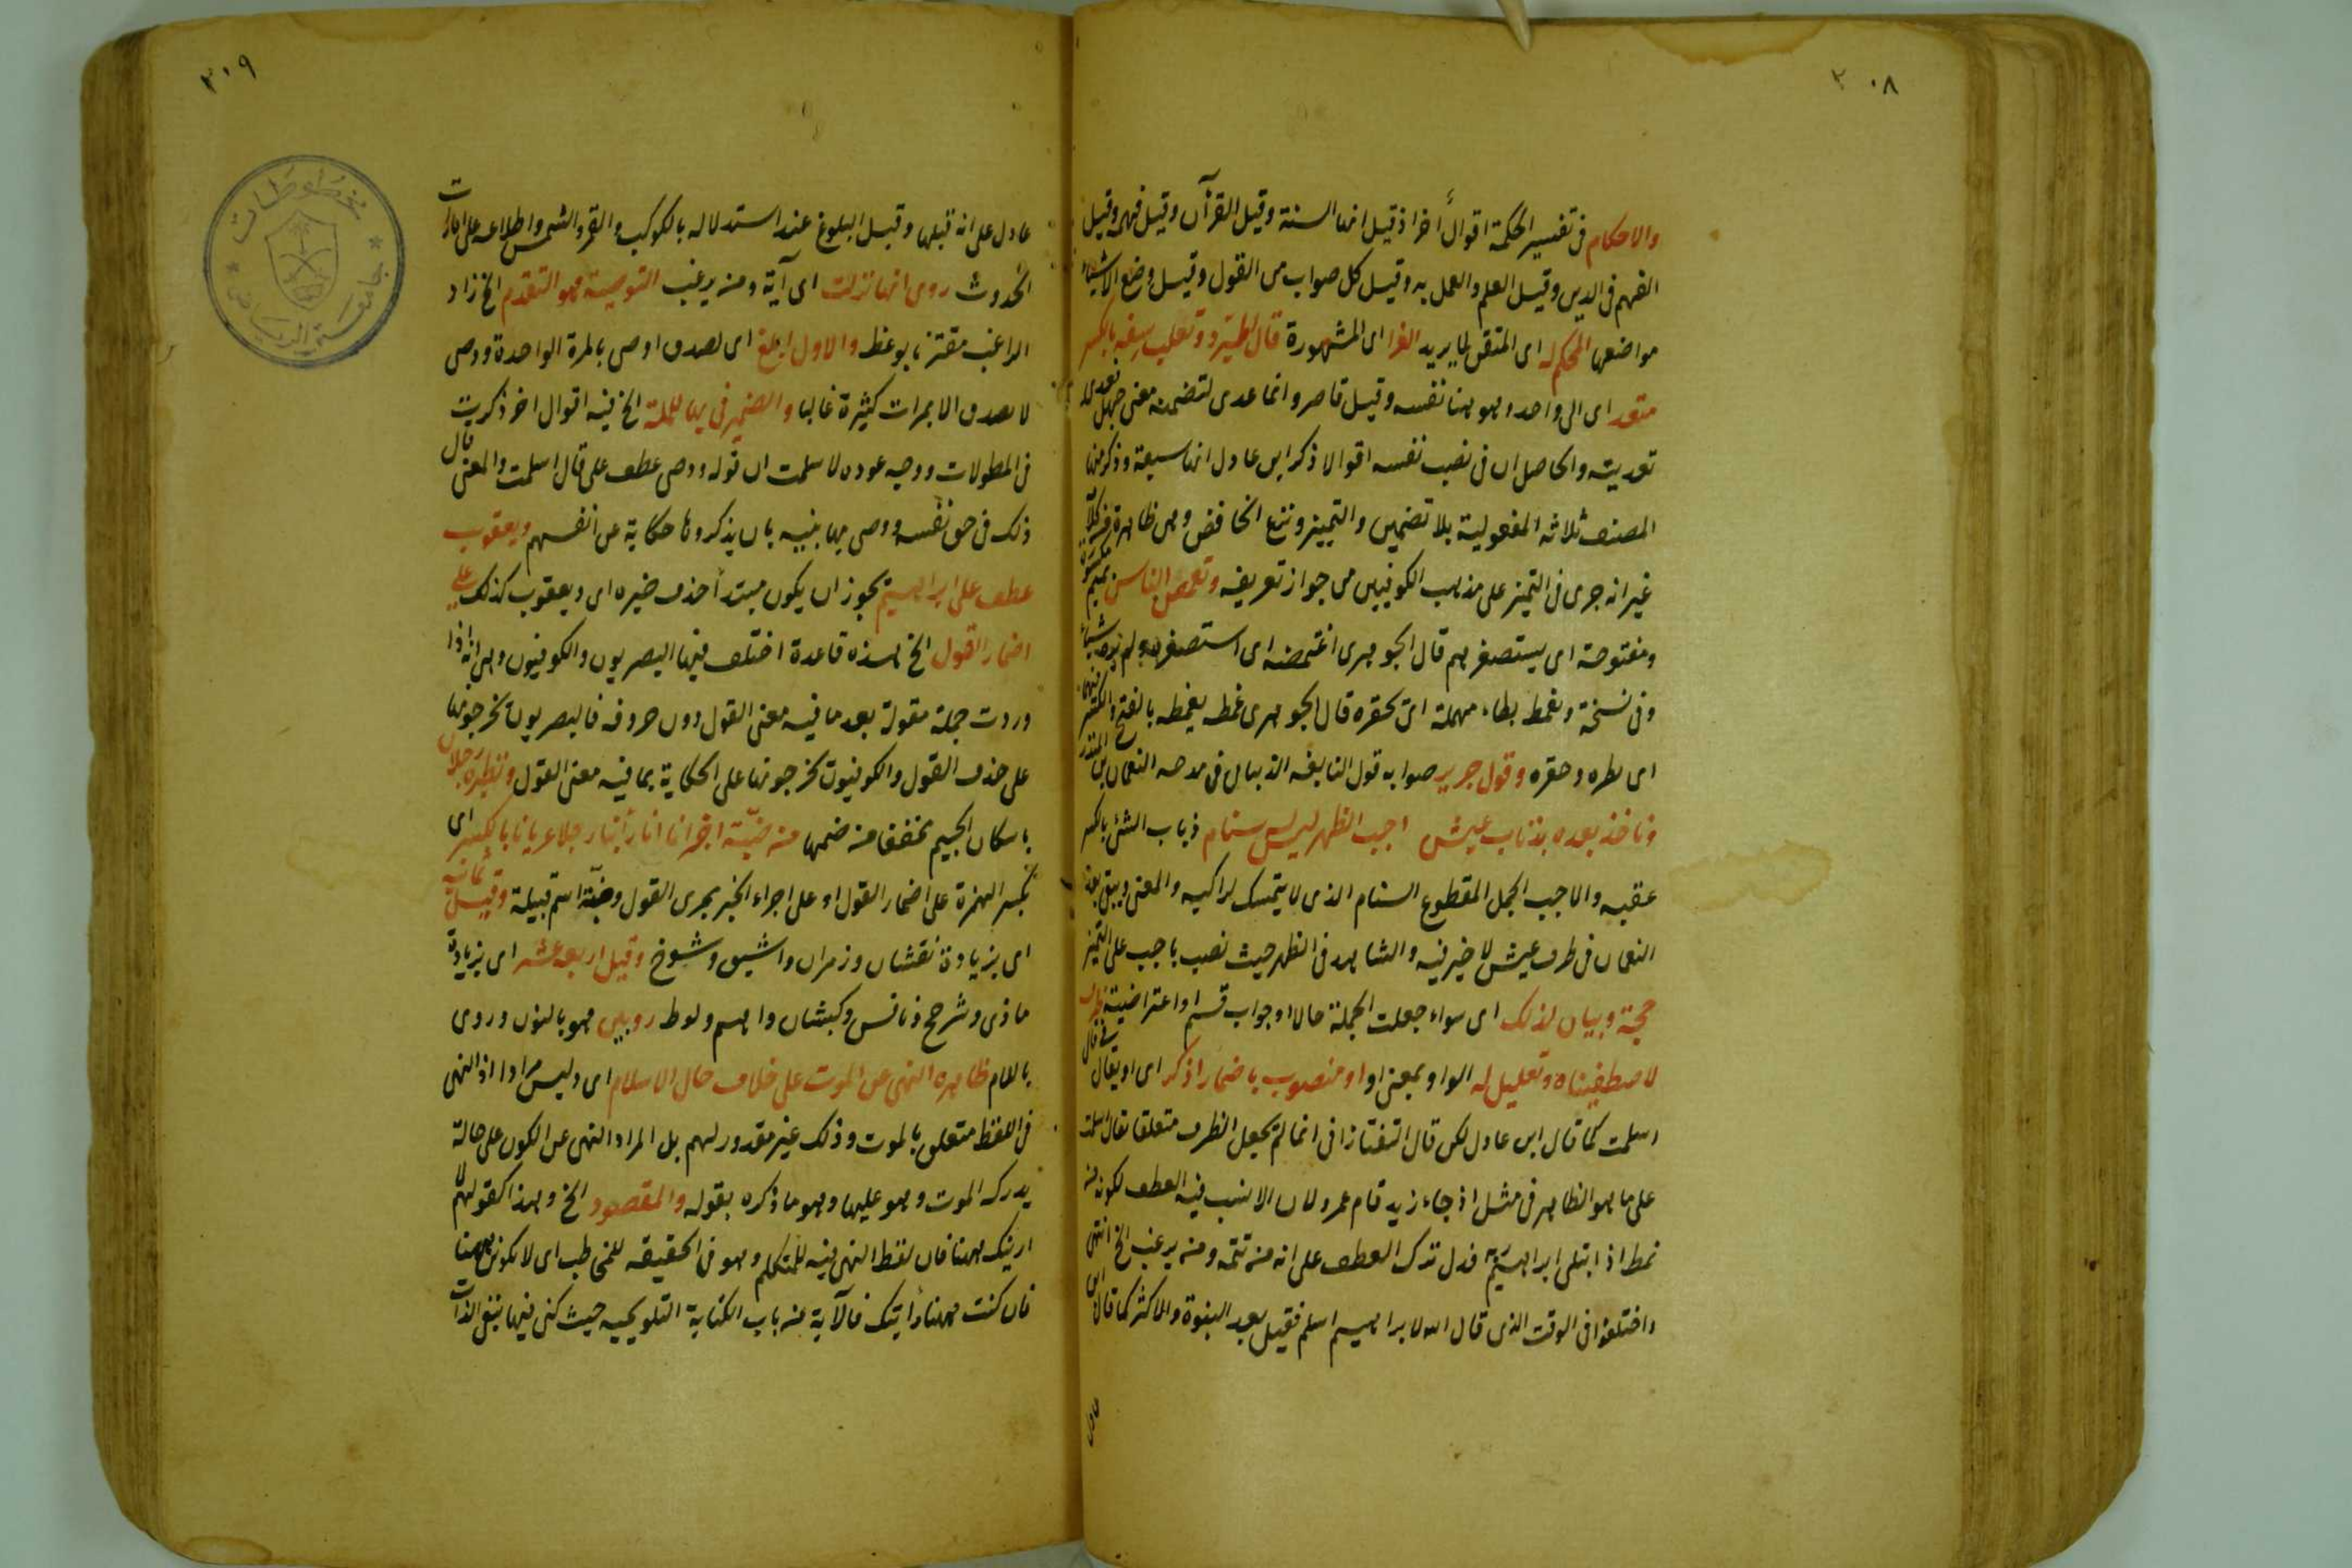 ٣٠٨
والاحكام فى تفسير الحكمة اقوالٌ اخر اذ قيل انها السنة وقيل القرآن وقيل فهمه وقيل
الفهم فى الدين وقيل العلم والعمل به وقيل كل صواب من القول وقيل وضع الاشياء
مواضعها المحكم له اى المتقن لما يريد الغرا اى المشهورة قال المبرد وثعلب سفه بالكسر
متعد اى الى واحد وهو هنا نفسه وقيل قاصر وانما عدى لتضمنه معنى جهل تعدى
تعديته والحاصل ان فى نصب نفسه اقوالا ذكر ابن عادل انها سبعة وذكر منها
المصنف ثلاثه المفعولية بلا تضمين والتمييز ونزع الخافض وهى ظاهرة
غير انه جرى فى التميز على مذهب الكوفيين من جواز تعريفه وتغمص الناس بميم مكسورة
ومفتوحة اى يستصغرهم قال الجوهرى اغتمضه اى استصغره ولم يره شيأ
وفى نسخة وتغمط بطاء مهملة اى تحقره قال الجوهرى غمط يغمطه بالفتح والكسر فيهما
اى بطره وحقره وقول جرير صوابه قول النابغه الذبيانى فى مدحه النعمان بن المنذر
وناخذ بعده بذناب عيش اجب الظهر ليس له سنام ذباب الشئ بالكسر
عقبه والاجب الجمل المقطوع السنام الذى لا يتمسك لراكبه والمعنى ويبقى بعد
النعمان فى طرف عيش لا خير فيه والشاهد فى الظهر حيث نصب باجب على التميز
حجة وبيان لذلك اى سواء جعلت الجملة حالا او جواب قسم او اعتراضية
لاصطفيناه وتعليل له الواو بمعنى او او منصوب باضمار اذكر اى او يقال
اسلمت كما قال ابن عادل لكن قال التفتازانى انما لم يجعل الظرف متعلقا بقال اسلمت
على ما هو الظاهر فى مثل اذ جاء زيد قام عمرو لان الانسب فيه العطف لكونه من
نمط اذ ابتلى ابراهيم فدل ترك العطف على انه من تتمه ومن يرغب الخ انتهى
واختلفوا فى الوقت الذى قال الله لابراهيم اسلم فقيل بعد النبوة والاكثر كما قال ابن
٣٠٩
عادل على انه قبلها وقبل البلوغ عند استدلاله بالكوكب والقمر والشمس واطلاعه على امارات
الحدوث روى انها نزلت اى آية ومن يرغب التوصية هو التقدم الخ زاد
الراغب مقترنا بوعظ والاول ابلغ اى لصدق اوصى بالمرة الواحدة ووصى
لا يصدق الا بمرات كثيرة غالبا والضمير فى بها للملة الخ فيه اقوال اخر ذكرت
فى المطولات ووجه عوده لاسلمت ان قوله ووصى عطف على قال اسلمت والمعنى قال
ذلك فى حق نفسه ووصى بها بنيه بان يذكروها حكاية عن انفسهم ويعقوب
عطف على ابراهيم يجوز ان يكون مبتدأ حذف خبره اى ويعقوب كذلك على
اضمار القول الخ هذه قاعدة اختلف فيها البصريون والكوفيون وهى انه اذا
وردت جملة مقولة بعد ما فيه معنى القول دون حروفه فالبصريون يخرجونها
على حذف القول والكوفيون يخرجونها على الحكاية بما فيه معنى القول ونظيره رجلان
باسكان الجيم تخففا من ضمها من ضبّة اخبرانا انا رأينا رجلا عريانا بالكسر اى
بكسر الهمزة على اضمار القول او على اجراء الخبر مجرى القول وضبّة اسم قبيلة وقيل ثمانية
اى بزيادة نقشان وزمران واشبق وشوخ وقيل اربعة عشر اى بزيادة
ماذى وشرحخ ونافس وكبشان واميم ولوط روبين هو بالنون وروى
باللام ظاهره النهى عن الموت على خلاف حال الاسلام اى وليس مرادا اذ النهى
فى اللفظ متعلق بالموت وذلك غير مقدور لهم بل المراد النهى عن الكون على حالة
يدركه الموت وهو عليها وهو ما ذكره بقوله والمقصود الخ وهذا كقولهم لا
ارينك ههنا فان لفظ النهى فيه للمتكلم وهو فى الحقيقه للمخاطب اى لا تكونن ههنا
فان كنت ههنا رأيتك فالآية من باب الكناية التلويحيه حيث كنى فيها بنفى الذات
مخطوطات
جامعة الرياض